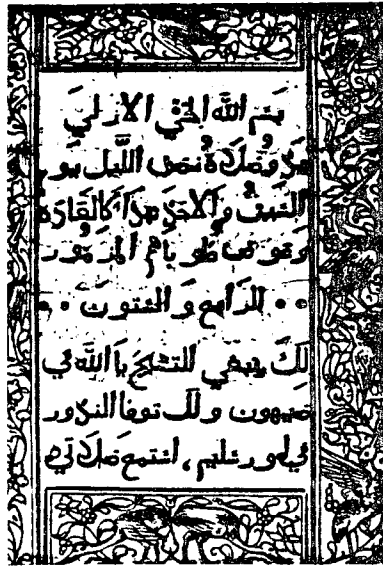 بسم الله الحي الازلي
صلاة نصف الليل
السبت والاحد كالعادة
وعوض طوباهم المزمور
الرابع والستون
لك ينبغي التسبيح يا الله في
صهيون ولك توفا النذور
اورشليم ، استمع صلاتي